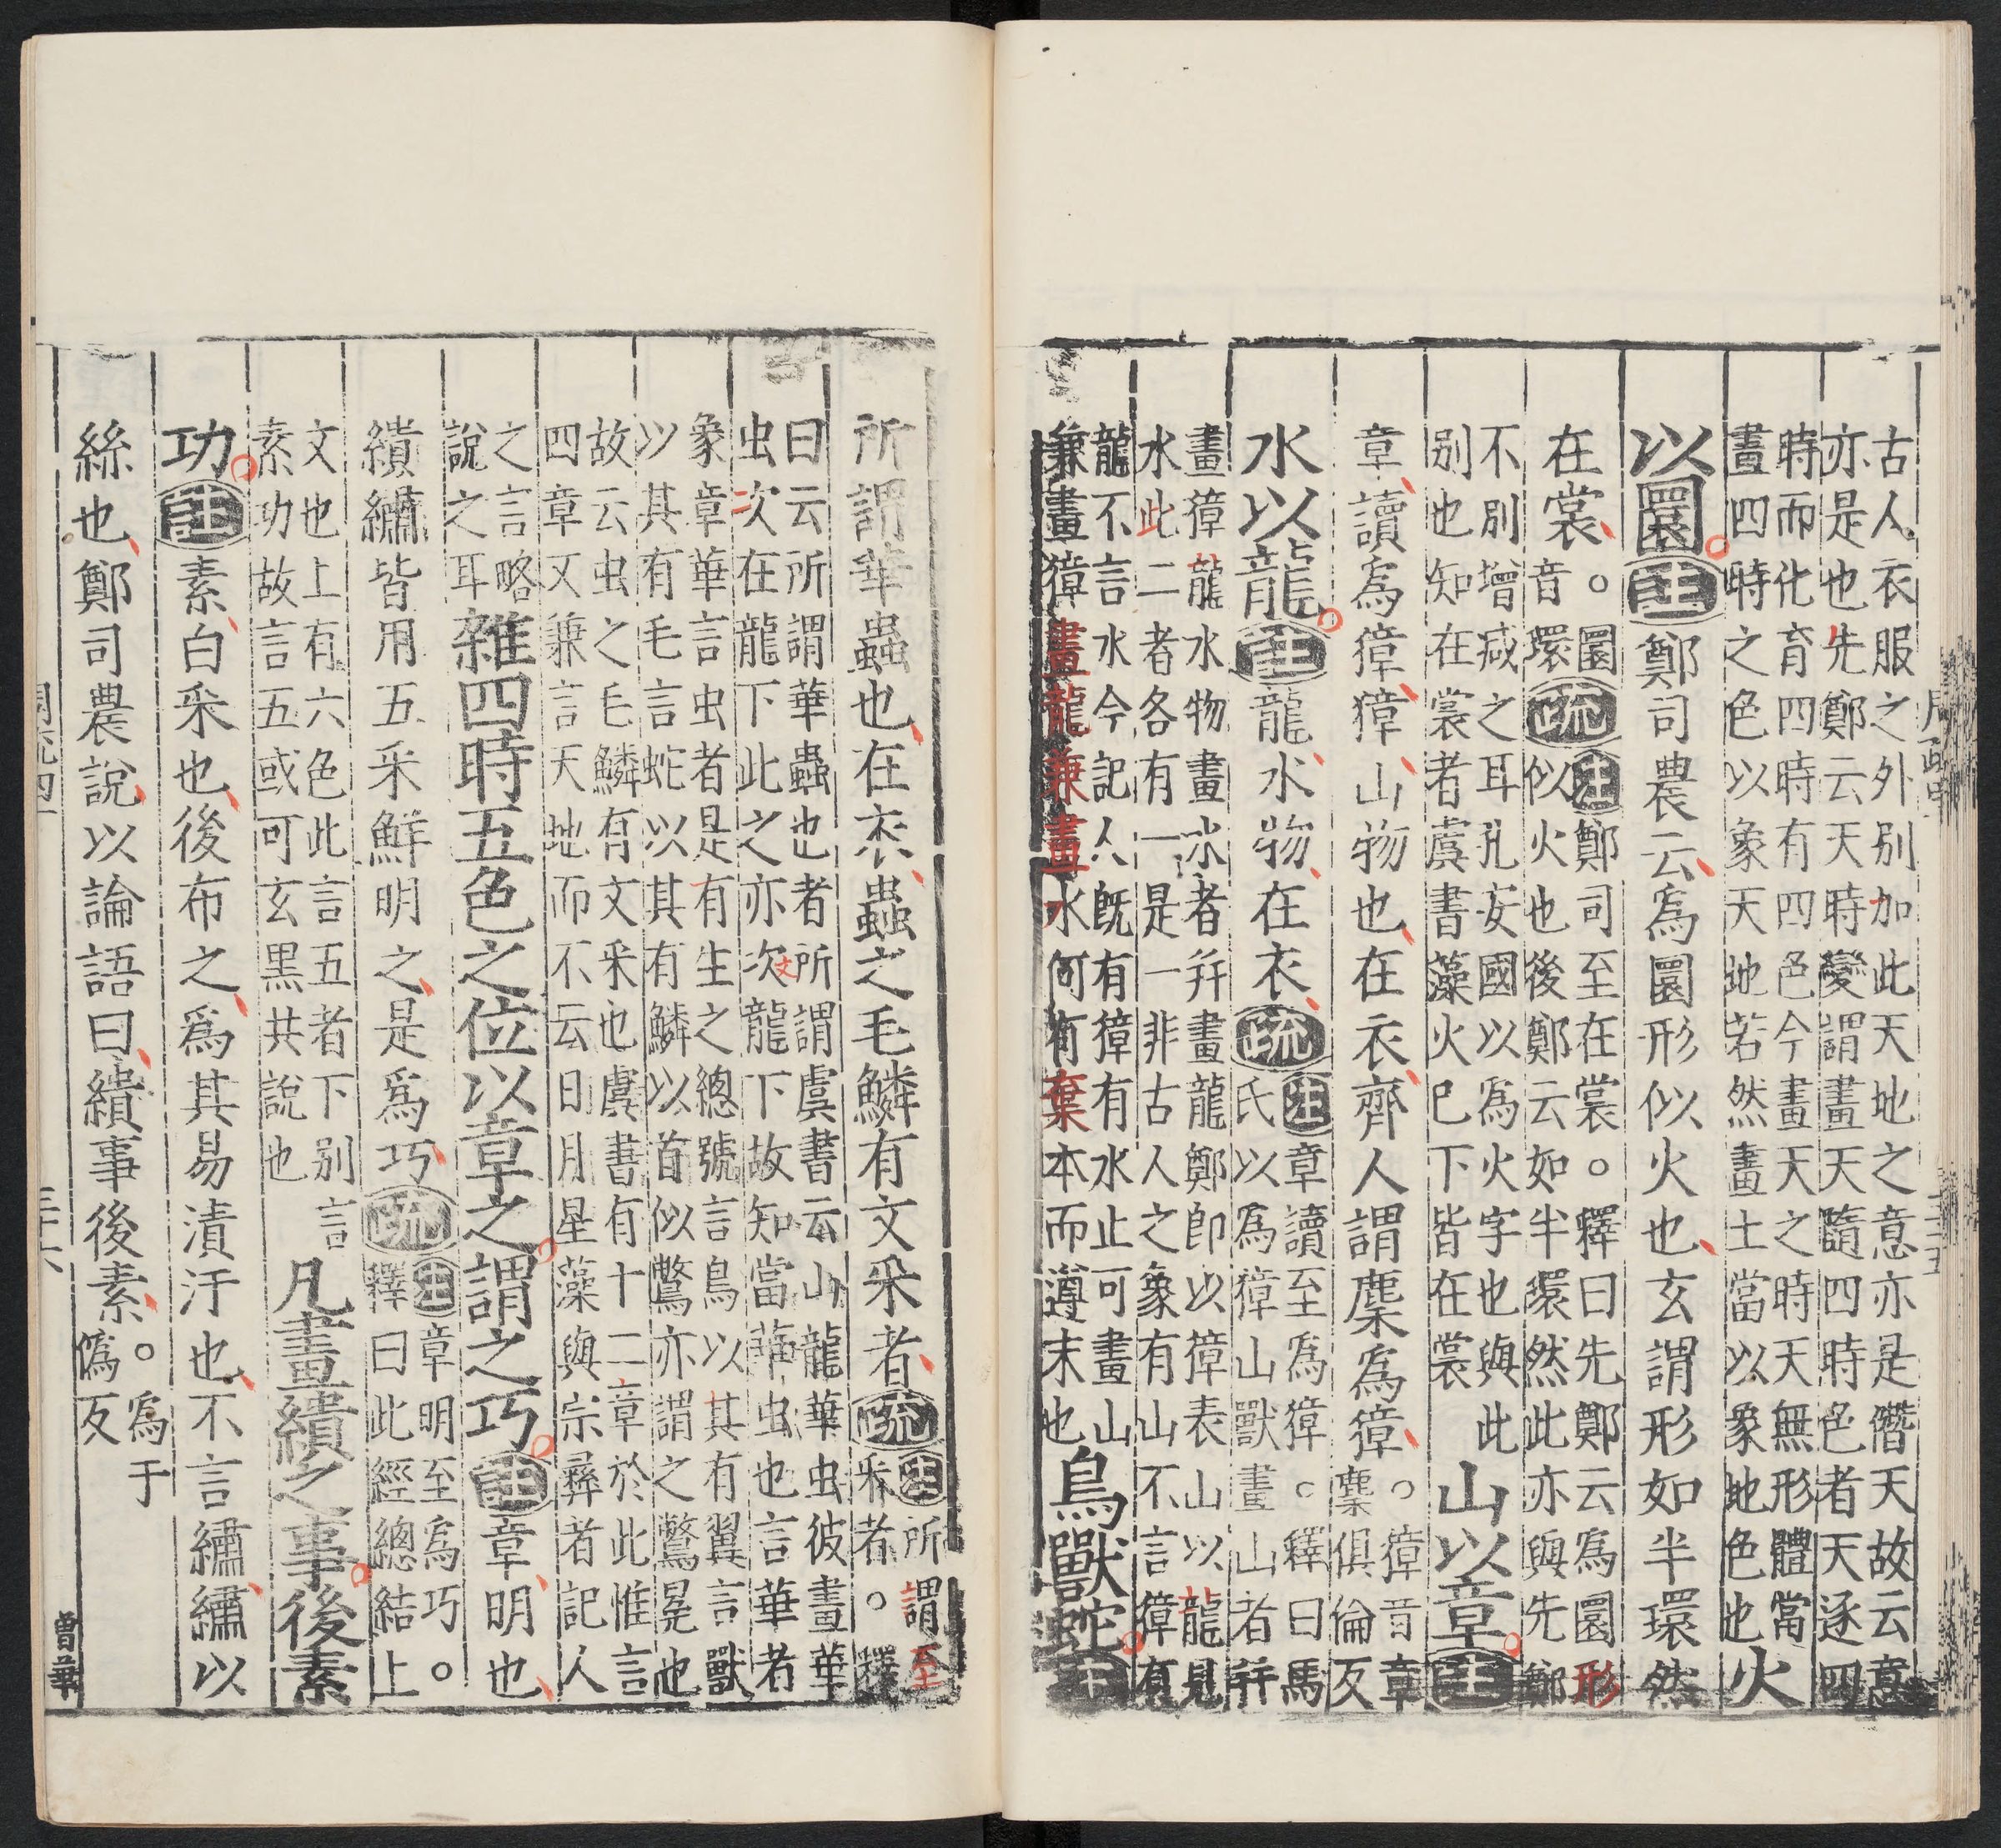 古人衣服之外別加此天地之意亦是僭天故云意
亦是也先鄭云天時變謂畫天隨四時色者天逐四
時而化育四時有四色今畫天之時天無形體當
畫四時之色以象天地若然畫土當以象地色也
火
以圜注鄭司農云爲圜形似火也玄謂形如半環然
在裳。圜音環疏
注鄭司至在裳。釋曰先鄭云爲圜形
似火也後鄭云如半環然此亦與先鄭
不別增成之耳孔安國以爲火字也與此
別也知在裳者虞書藻火已下皆在裳
山以章注
章讀爲獐獐山物也在衣齊人謂麇爲獐。獐音章
麇俱倫反
水以龍注龍水物在衣疏
注章讀至爲獐。釋曰馬
氏以爲獐山獸畫山者并
畫獐龍水物畫水者并畫龍鄭即以獐表山以龍見
水此二者各有一是一非古人之象有山不言獐有
龍不言水今記人既有獐有水止可畫山
兼畫獐畫龍兼畫水何有棄本而遵末也
鳥獸蛇注
所謂華蟲也在衣蟲之毛鱗有文采者疏
注所謂至
采者。釋
曰云所謂華蟲也者所謂虞書云山龍華虫彼畫華
虫次在龍下此之亦次龍下故知當華虫也言華者
象章華言虫者是有生之總號言鳥以其有翼言獸
以其有毛言蛇以其有鱗以首似鷩亦謂之鷩冕也
故云虫之毛鱗有文采也虞書有十二章於此惟言
四章又兼言天地而不云日月星藻與宗彝者記人
之言略
說之耳
雜四時五色之位以章之謂之巧注章明也
繢繡皆用五采鮮明之是爲巧疏
注章明至爲巧。
釋曰此經總結上
文也上有六色此言五者下別言
素功故言五或可玄黑共說也
凡畫繢之事後素
功注素白采也後布之爲其易漬汙也不言繡繡以
絲也鄭司農說以論語曰繢事後素。爲于
僞反
三十六
曾華